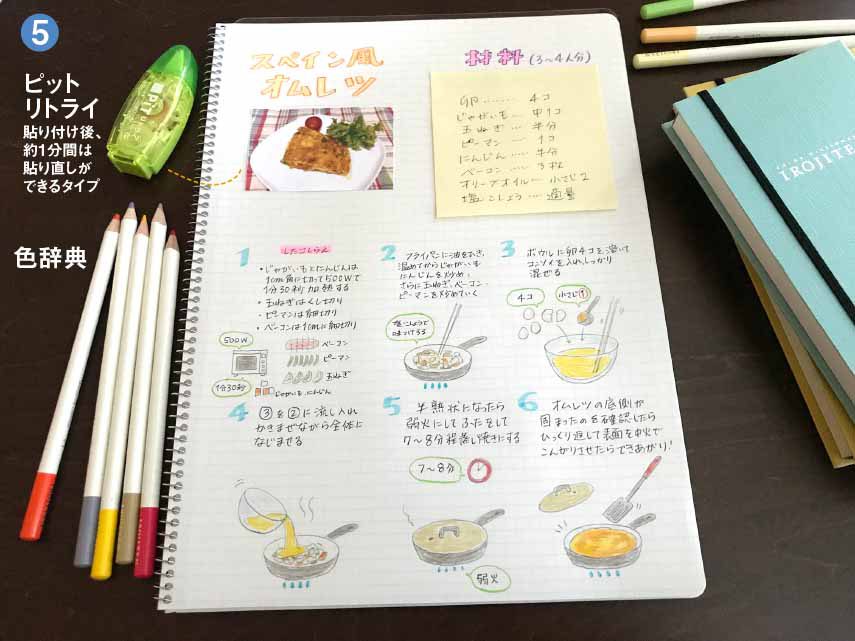 5
ピット
リトライ
貼り付け後、
約1分間は
貼り直しが
できるタイプ
色辞典
スペイン風
オムレツ
材料 (3〜4人分)
卵 ……… 4コ
じゃがいも … 中1コ
玉ねぎ … 半分
ピーマン … 1コ
にんじん … 半分
ベーコン … 3枚
オリーブオイル … 小さじ2
塩こしょう … 適量
1 したごしらえ
・じゃがいもとにんじんは
1cm角に切って500Wで
1分30秒加熱する
・玉ねぎはくし切り
・ピーマンは細切り
・ベーコンは1cmに細切り
500W
1分30秒
ベーコン
ピーマン
玉ねぎ
じゃがいも にんじん
2 フライパンに油をしき、
温めてからじゃがいも
にんじんを炒め、
さらに玉ねぎ、ベーコン・
ピーマンを炒めていく
塩こしょうで
味つけする
3 ボウルに卵4コを溶いて
コンソメを入れ、しっかり
混ぜる
4コ
小さじ1
4 ③を②に流し入れ
かきまぜながら全体に
なじませる
5 半熟状になったら
弱火にしてふたをして
7〜8分程蒸し焼きにする
7〜8分
弱火
6 オムレツの底側が
固まったのを確認したら
ひっくり返して表面を中火で
こんがりさせたらできあがり!
IROJITEN